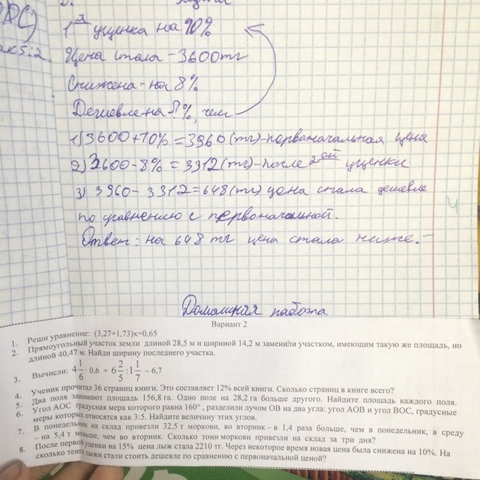 1ая уценка на 10%
Цена стала - 3600 тг
Снижена - на 8%
Дешевле на ?%, чем
1) 3600+10% = 3960 (тг) - первоначальная цена
2) 3600-8% = 3312 (тг) - после 2ой уценки
3) 3960-3312 = 648 (тг) цена стала дешевле
по сравнению с первоначальной.
Ответ: на 648 тг цена стала ниже.
Домашняя работа
Вариант 2
1. Реши уравнение: (3,27+1,73)x=0,65
2. Прямоугольный участок земли длиной 28,5 м и шириной 14,2 м заменили участком, имеющим такую же площадь, но
длиной 40,47 м. Найди ширину последнего участка.
3. Вычисли: 4 1/6 · 0,6 + 6 2/5 : 1 1/7 − 6,7
4. Ученик прочитал 36 страниц книги. Это составляет 12% всей книги. Сколько страниц в книге всего?
5. Два поля занимают площадь 156,8 га. Одно поле на 28,2 га больше другого. Найдите площадь каждого поля.
6. Угол АОС градусная мера которого равна 160°, разделили лучом ОВ на два угла: угол АОВ и угол ВОС, градусные
меры которых относятся как 3:5. Найдите величину этих углов.
7. В понедельник на склад привезли 32,5 т моркови, во вторник - в 1,4 раза больше, чем в понедельник, в среду
– на 5,4 т меньше, чем во вторник. Сколько тонн моркови привезли на склад за три дня?
8. После первой уценки на 15% цена лыж стала 2210 тг. Через некоторое время новая цена была снижена на 10%. На
сколько тенге лыжи стали стоить дешевле по сравнению с первоначальной ценой?